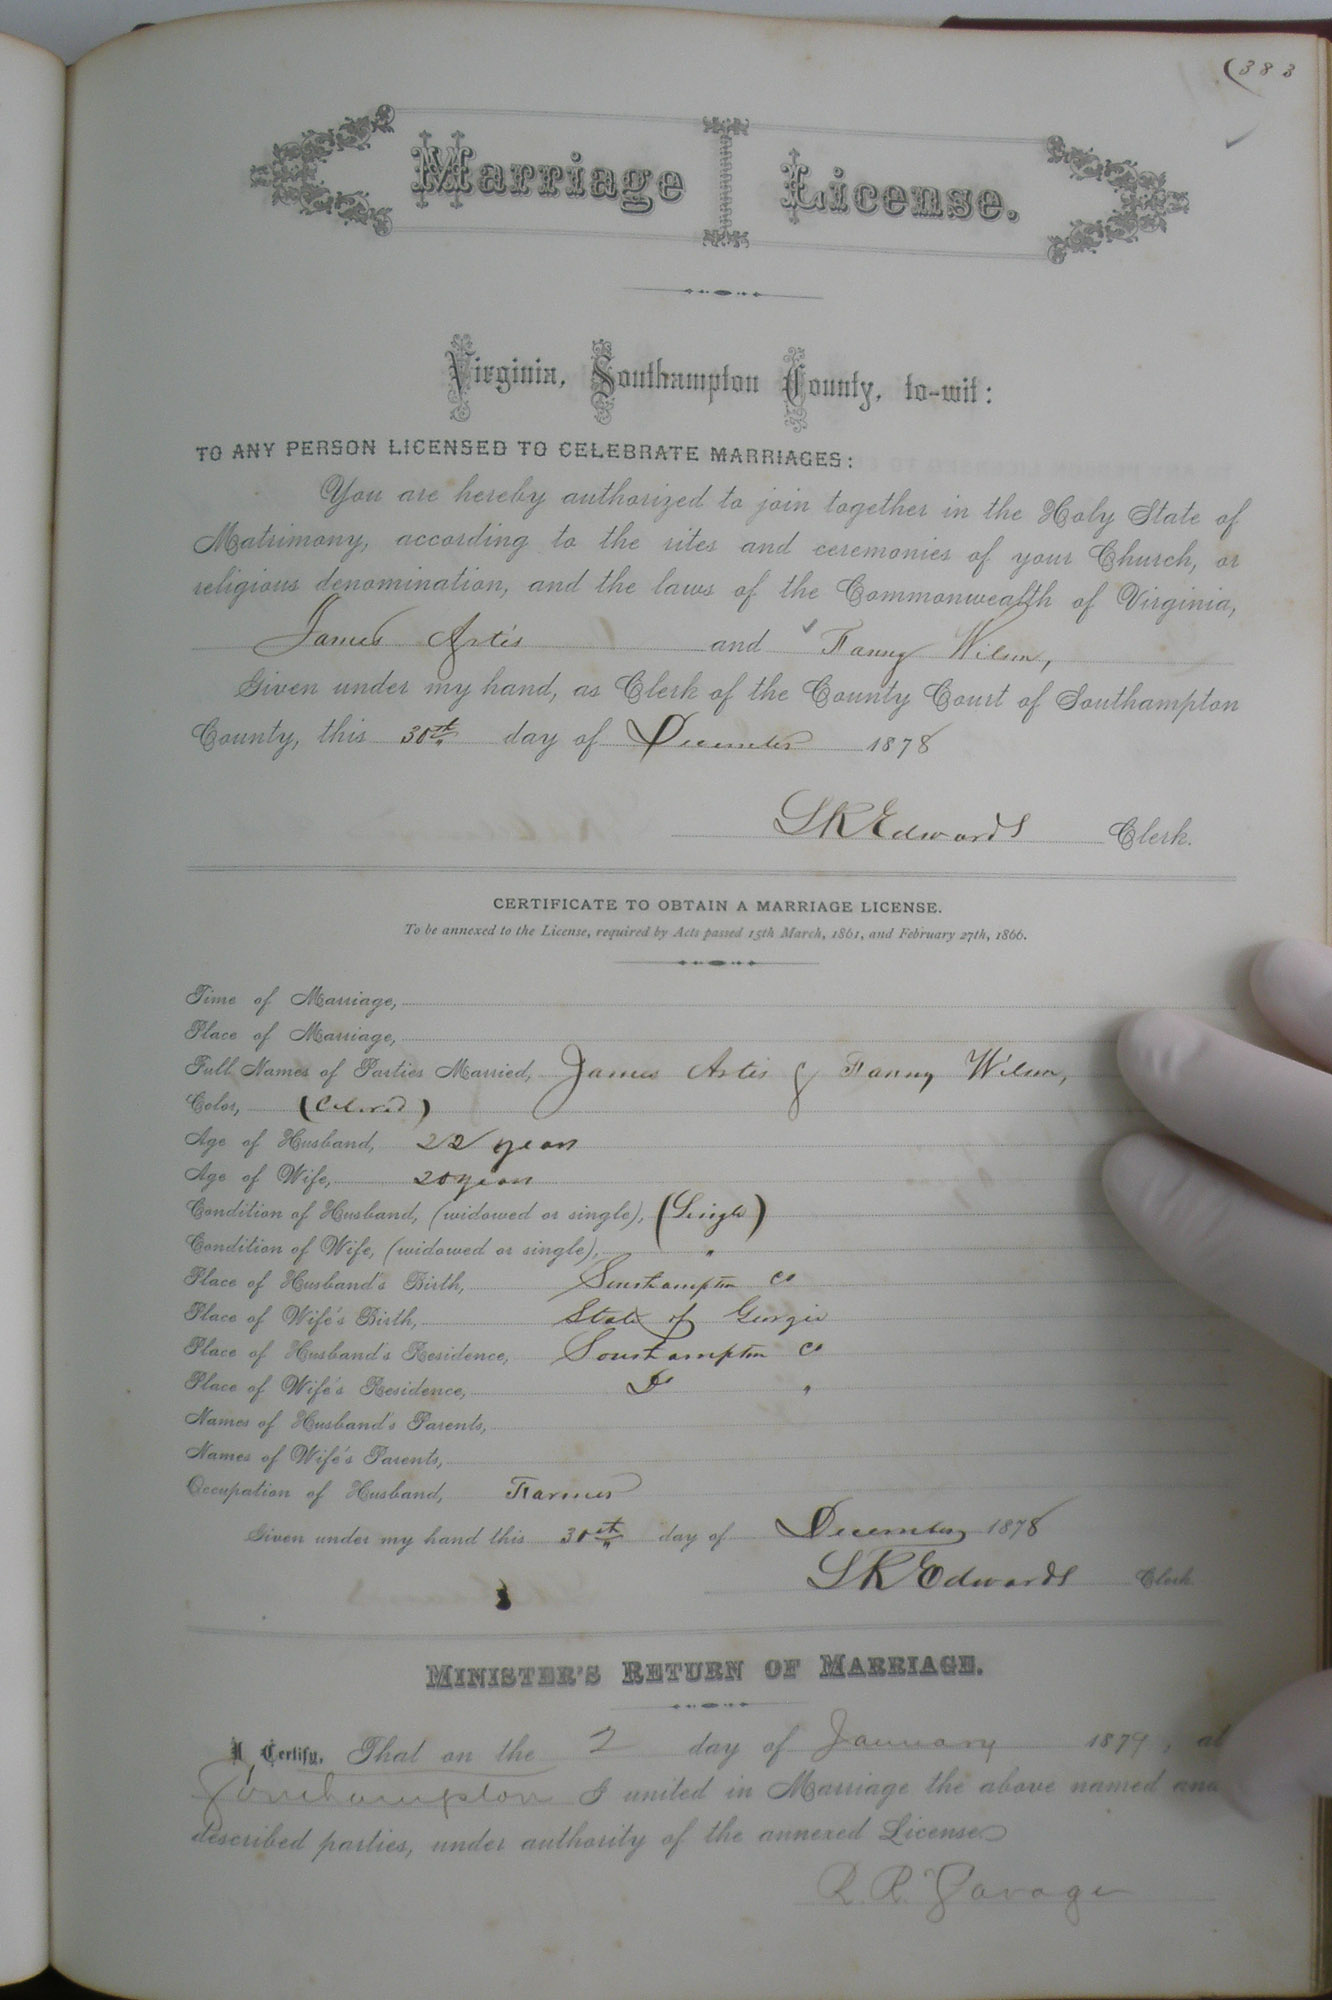 (383
Marriage License.
Virginia, Southampton County, to-wit:
TO ANY PERSON LICENSED TO CELEBRATE MARRIAGES:
You are hereby authorized to join together in the Holy State of
Matrimony, according to the rites and ceremonies of your Church, or
religious denomination, and the laws of the Commonwealth of Virginia,
James Artis and Fanny Wilson,
Given under my hand, as Clerk of the County Court of Southampton
County, this 30th day of December 1878
LREdwards Clerk.
CERTIFICATE TO OBTAIN A MARRIAGE LICENSE.
To be annexed to the License, required by Acts passed 15th March, 1861, and February 27th, 1866.
Time of Marriage,
Place of Marriage,
Full Names of Parties Married, James Artis & Fanny Wilson,
Color, (Colored)
Age of Husband, 22 years
Age of Wife, 20 years
Condition of Husband, (widowed or single), (Single)
Condition of Wife, (widowed or single), "
Place of Husband's Birth, Southampton Co
Place of Wife's Birth, State of Georgia
Place of Husband's Residence, Southampton Co
Place of Wife's Residence, Do "
Names of Husband's Parents,
Names of Wife's Parents,
Occupation of Husband, Farmer
Given under my hand this 30th day of December 1878
LREdwards Clerk.
MINISTER'S RETURN OF MARRIAGE.
I Certify, That on the 2 day of January 1879, at
Southampton I united in Marriage the above named and
described parties, under authority of the annexed License
R. R. Savage